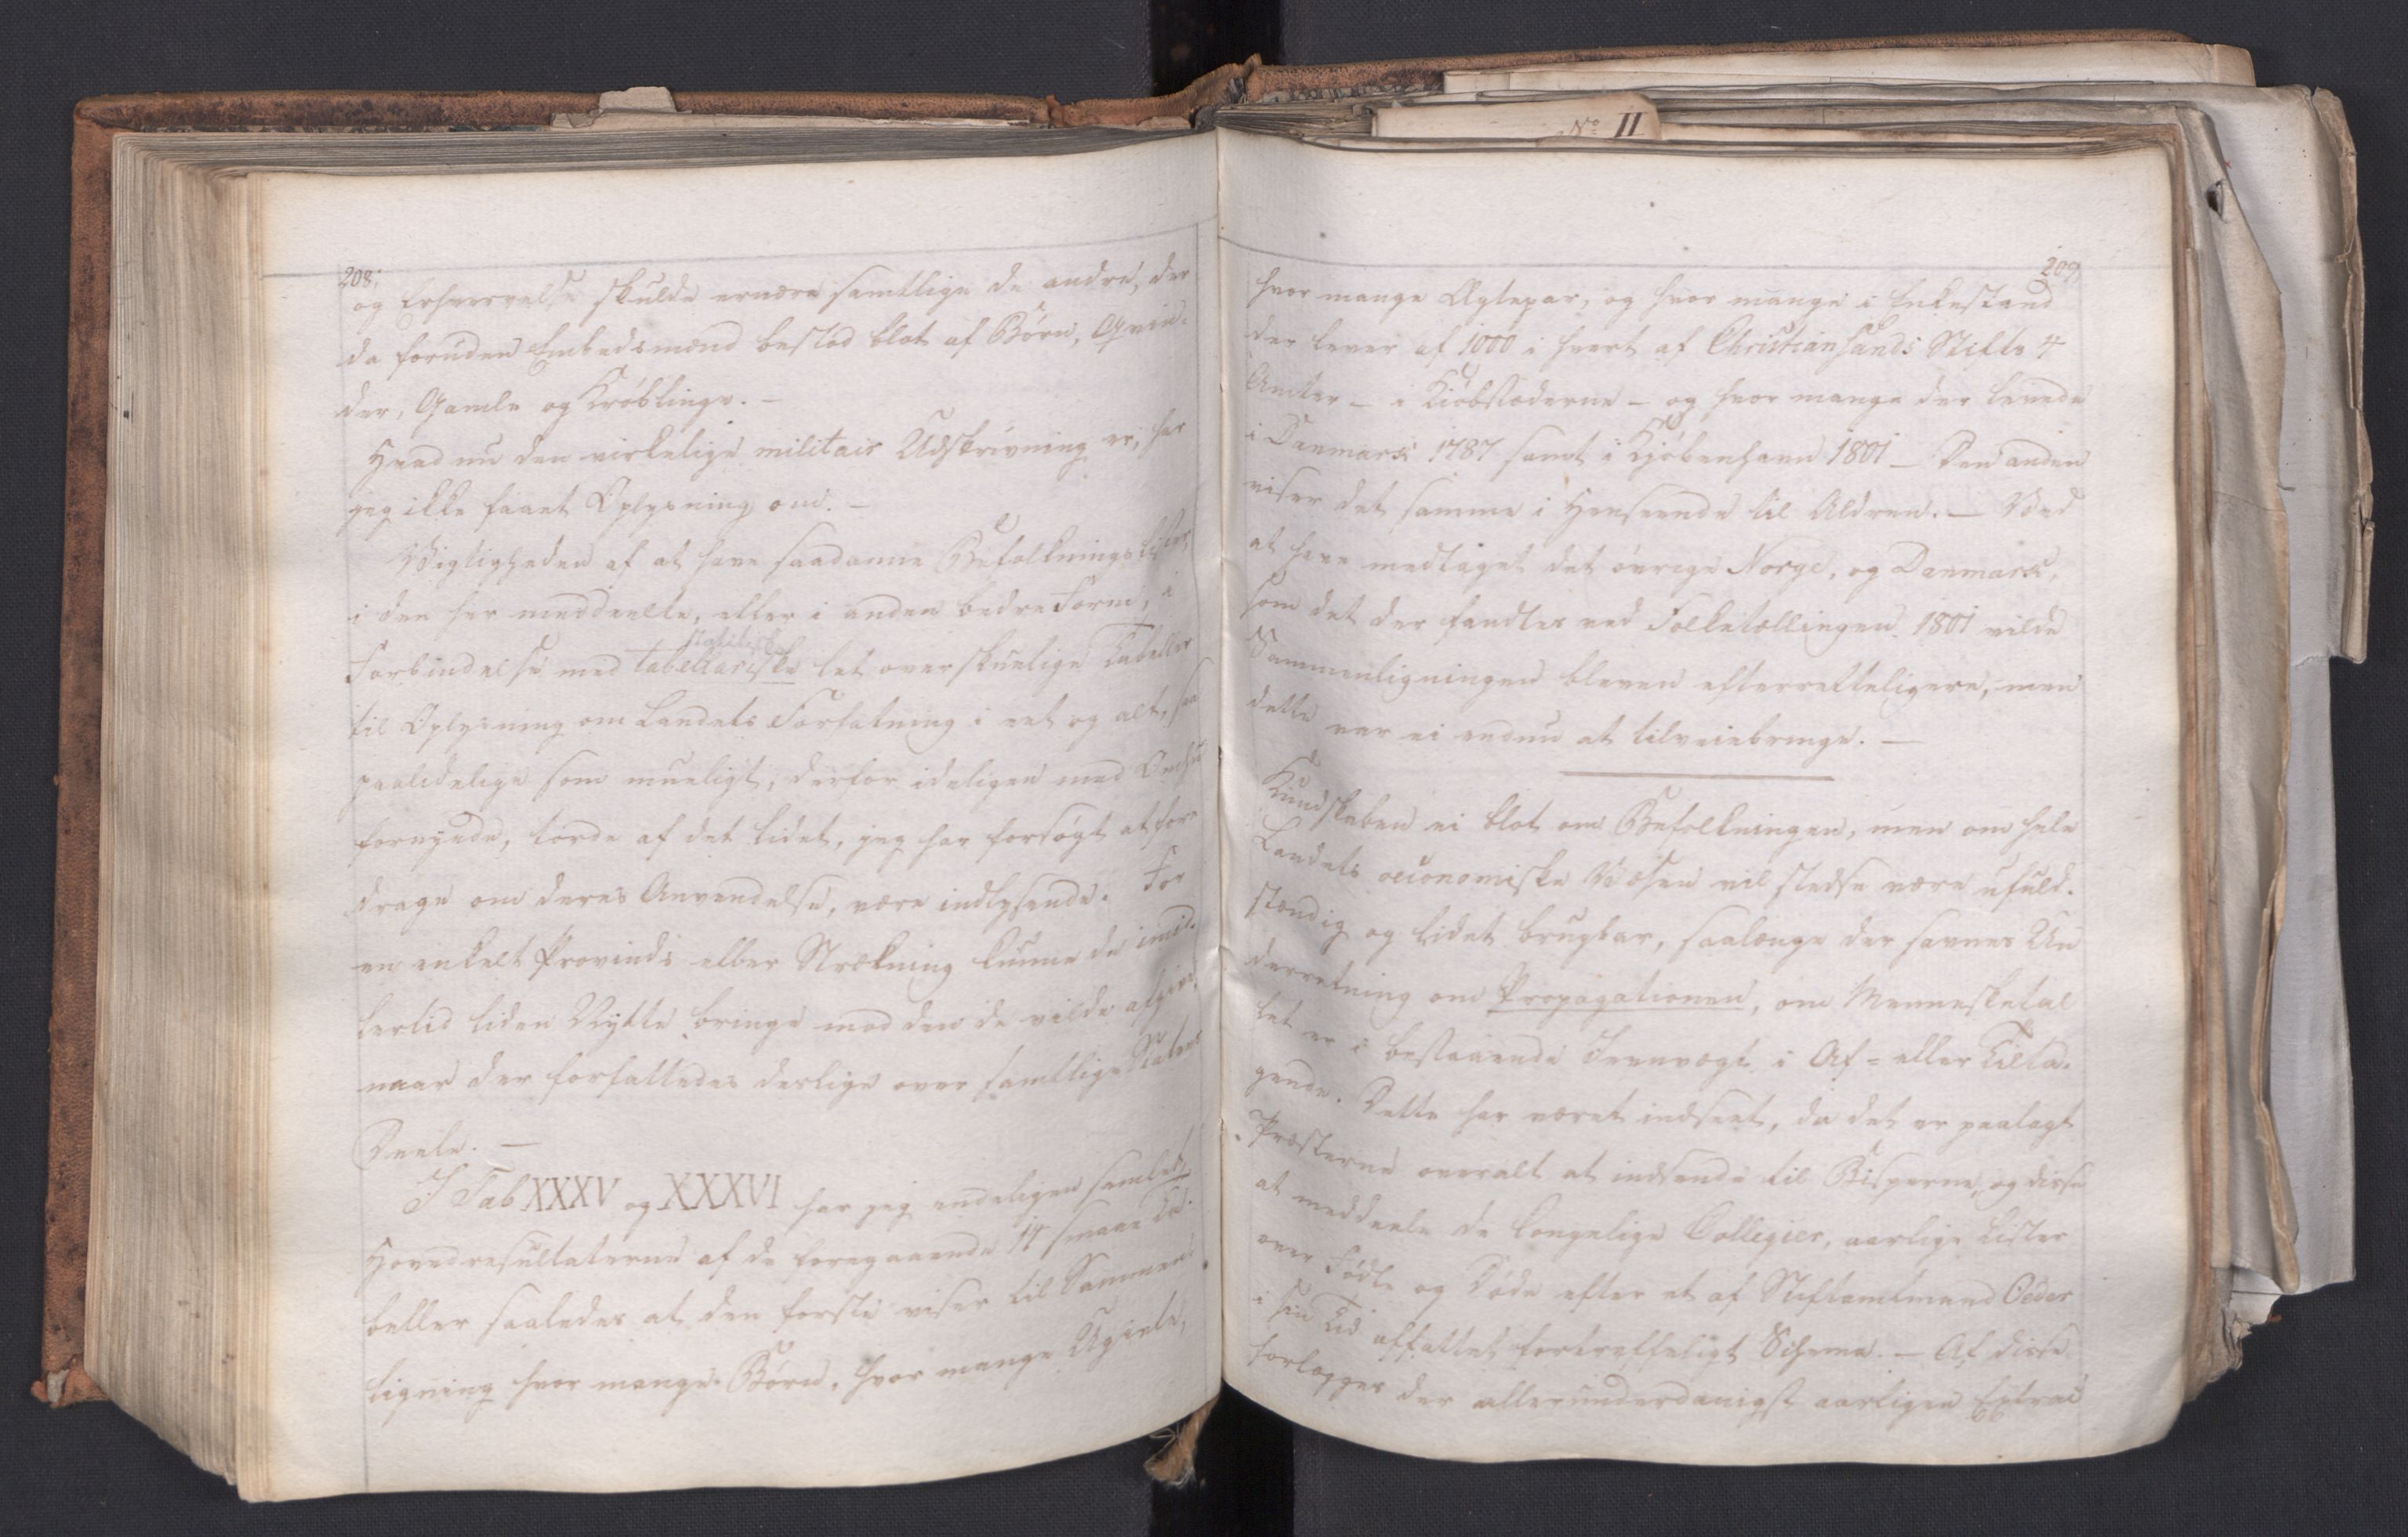 No II
208.
og Erhvervelse skulde ernære samtlige de andre, der
da foruden Embedsmænd bestod blot af Börn, Qvin-
der, Gamle og Kröblinge. —
Hvad nu den virkelige militair Udskrivning er, har
jeg ikke faaet Oplysning om. —
Vigtigheden af at have saadanne Befolknings Lister
i den her meddeelte, eller i anden bedre Form, i
statistiske
Forbindelse med tabellariske let overskuelige Tabeller
til Oplysning om Landets Forfatning i eet og alt, saa
paalidelige som mueligt, derfor ideligen med Omhu
fornyede, torde af det lidet, jeg har forsögt at fore
drage om deres Anvendelse, være indlysende. For
en enkelt Provinds eller Strækning kunne de imid-
lertid liden Nytte bringe mod den de vilde afgive,
naar der forfattedes deslige over samtlige Statens
Deele. —
I Tab XXXV og XXXVI har jeg endeligen samlet
Hovedresultaterne af de foregaaende 14 smaae Ta-
beller saaledes at den förste viser til Sammen
ligning hvor mange Börn, hvor mange Ugivte,
209
hvor mange Ægtepar, og hvor mange i Enkestand
der lever af 1000 i hvert af Christiansands Stifts 4
Amter — i Kiöbstæderne — og hvor mange der levede
i Danmark 1787 samt i Kjöbenhavn 1801 — Den anden
viser det samme i Henseende til Alderen. — Ved
at have medtaget det övrige Norge, og Danmark,
som det der fandtes ved Folketællingen 1801 vilde
Sammenligningen bleven efterretteligere, men
dette var ei endnu at tilveiebringe. —
Kundskaben ei blot om Befolkningen, men om hele
Landets oeconomiske Væsen vil stedse være ufuld-
stændig og lidet brugbar, saalænge der savnes Un
derretning om Propagationen, om Mennesketal
let er i bestaaende Jevnvægt i Af- eller Tilta-
gende. Dette har været indseet, da det er paalagt
Præsterne overalt at indsende til Bisperne, og disse
at meddeele de kongelige Collegier, aarlige Lister
over Födte og Döde efter et af Stiftamtmand Oeder
i sin Tid affattet fortreffeligt Schema. — Af disse
forlægges der allerunderdanigst aarligen Extract